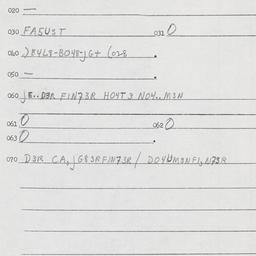 020 —
030 FA5U3T 031 0
040 )E4L8-8O48-jG+ (028 .
050 — .
060 jE..D3R FIN73R HO4T3 NO4..M3N
061 0 062 0
063 0 .
070 D3R CA,jG83RFIN73R/ DO4UM3NFI,N73R